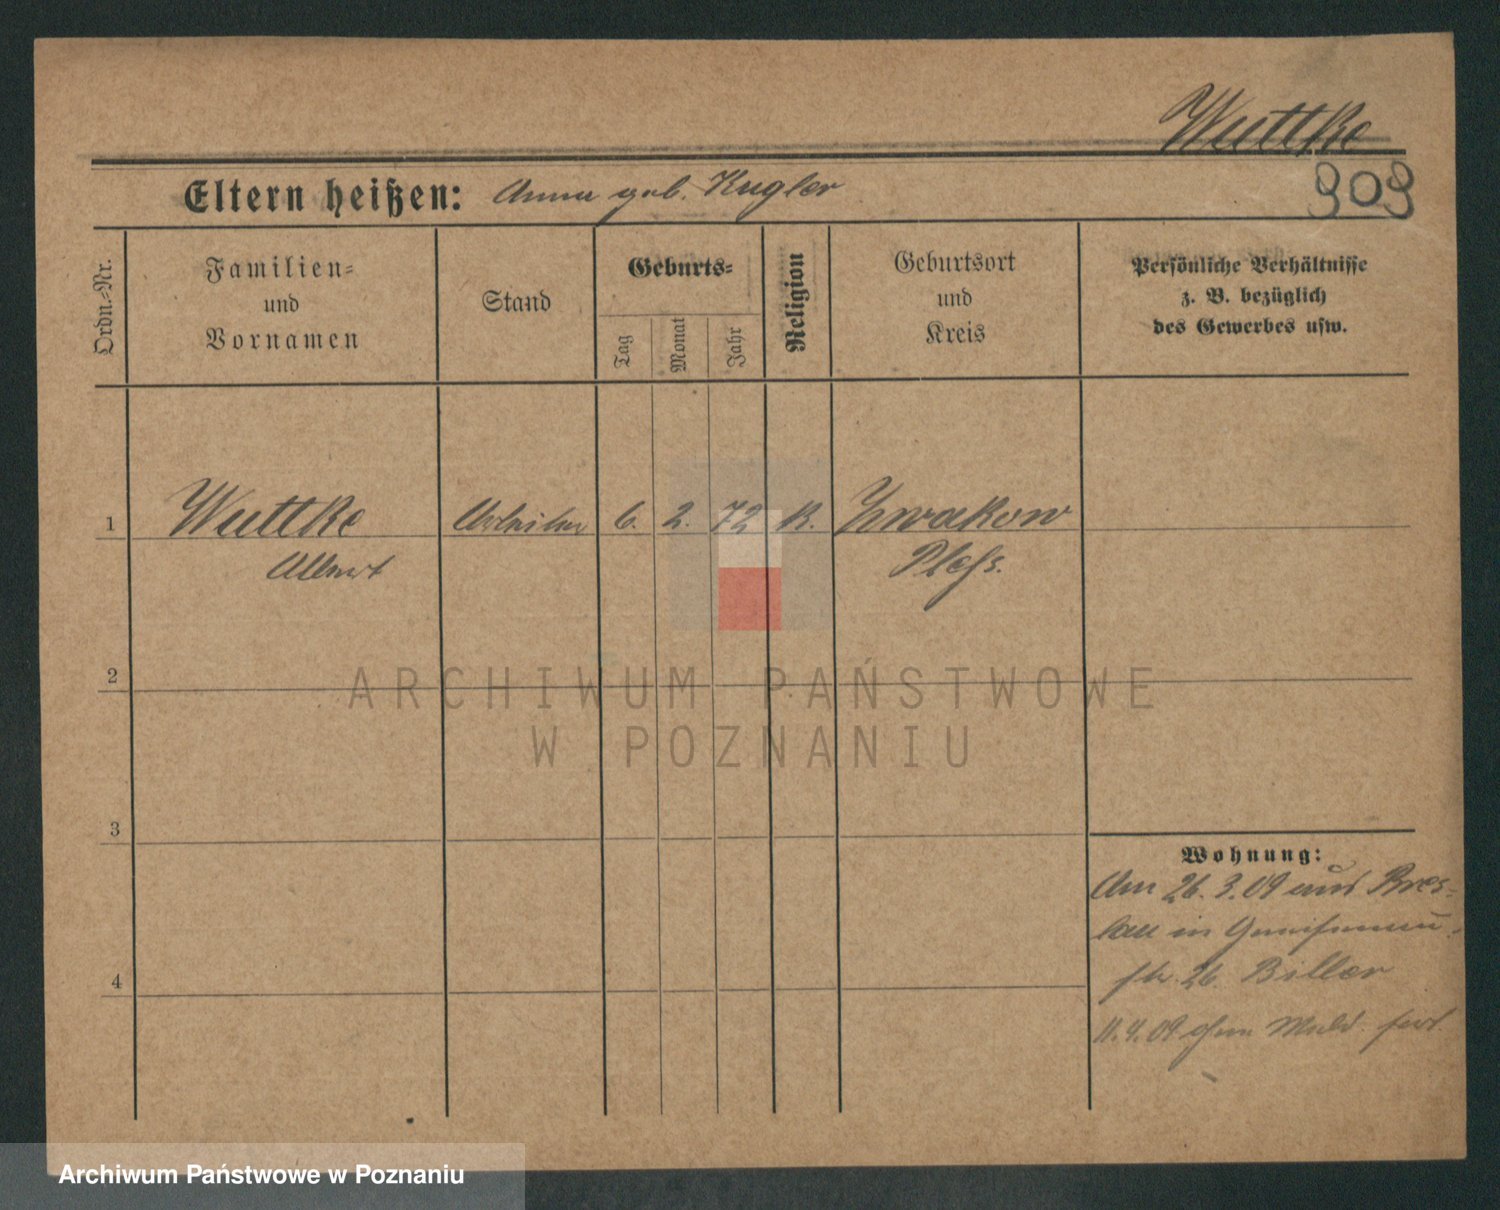 Wuttke
909
Eltern heißen: Anna geb. Kugler
Ordn.-Nr.
Familien-
und
Vornamen
Stand
Geburts-
Tag
Monat
Jahr
Religion
Geburtsort
und
Kreis
Persönliche Verhältnisse
z. B. bezüglich
des Gewerbes usw.
1 Wuttke Arbeiter 6. 2. 72 K. Zwakow
Albert Pleß.
2
ARCHIWUM PAŃSTWOWE
W POZNANIU
3
Wohnung:
Am 26. 3. 09 aus Bres-
lau in Gneisenau
str. 26. Biller
4
11. 4. 09 ohne Meld. fort
Archiwum Państwowe w Poznaniu